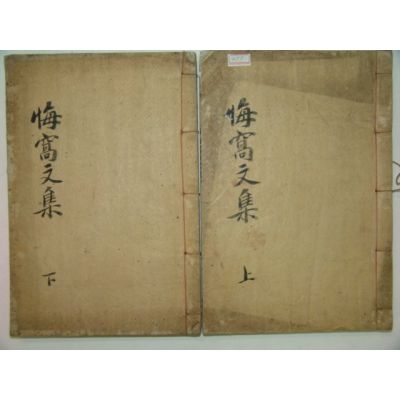 悔窩文集
上
悔窩文集
下